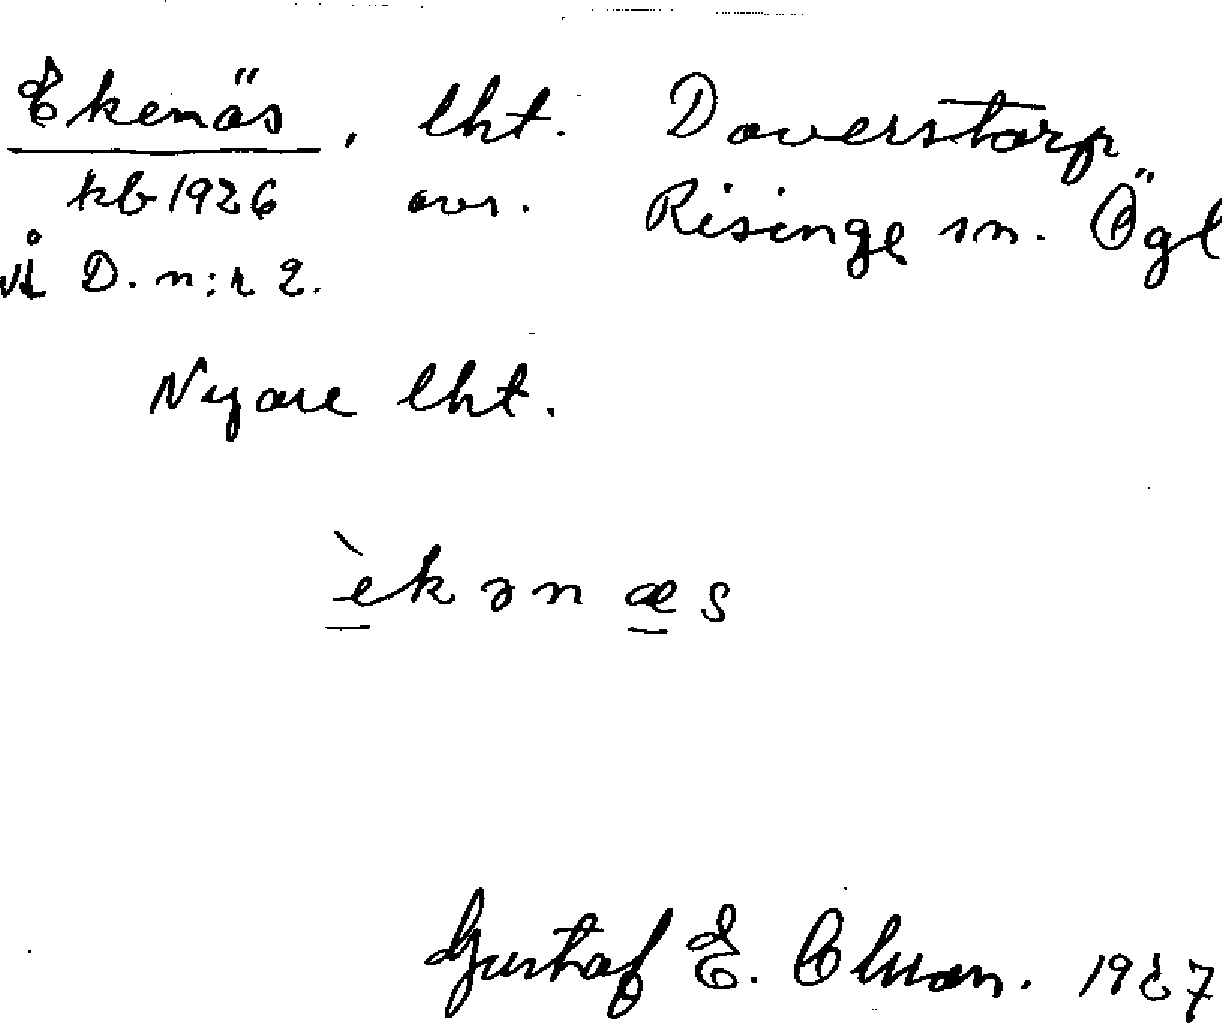 Ekenäs, lht. Daverstorp
kb 1926 avs. Risinge sn. Ögl
på D. n:r 2.
Nyare lht.
èkənæs
Gustaf E. Olson. 1927